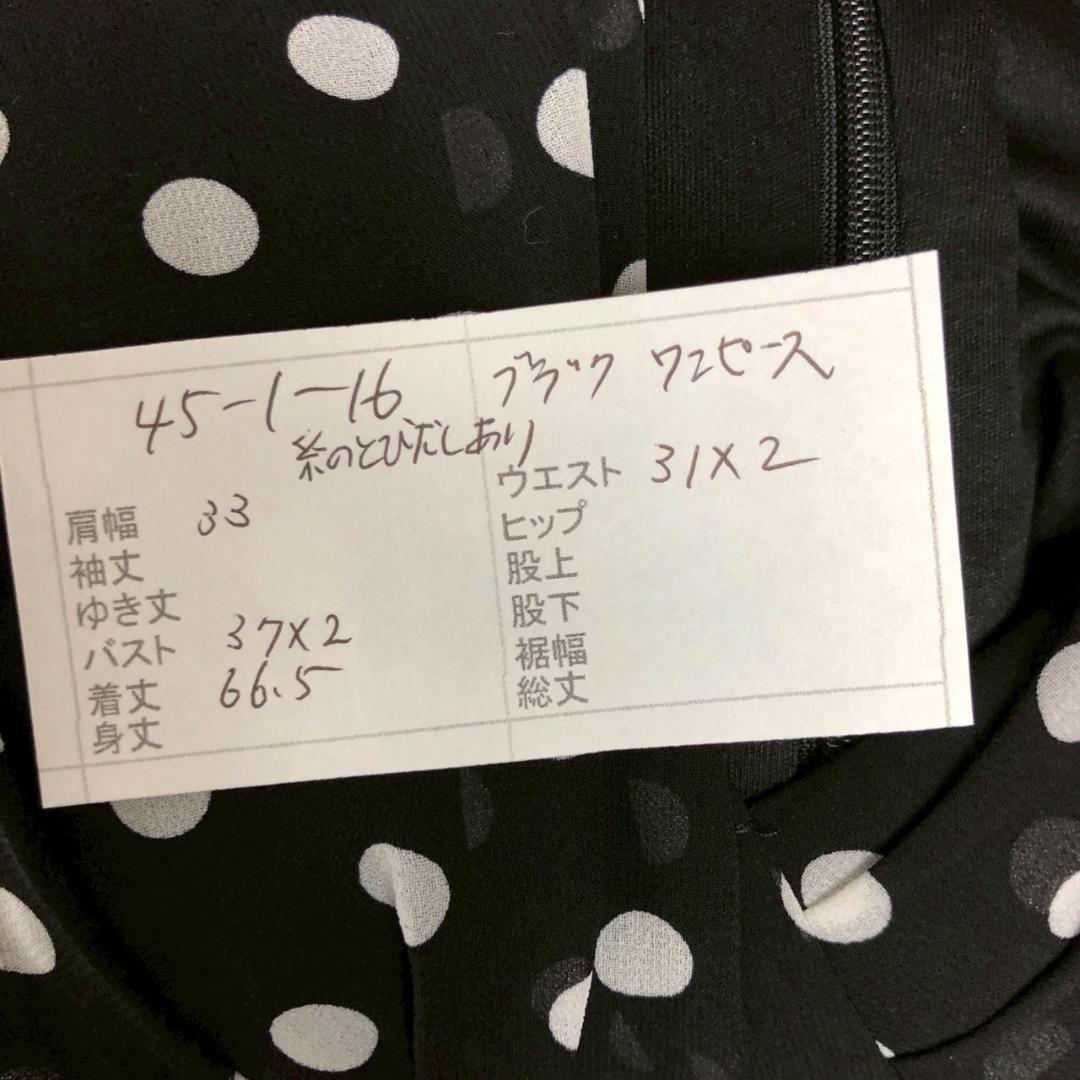 45-1-16 ブラック ワンピース
糸のとびだしあり
肩幅 33
袖丈
ゆき丈
バスト 37×2
着丈 66.5
身丈
ウエスト 31×2
ヒップ
股上
股下
裾幅
総丈